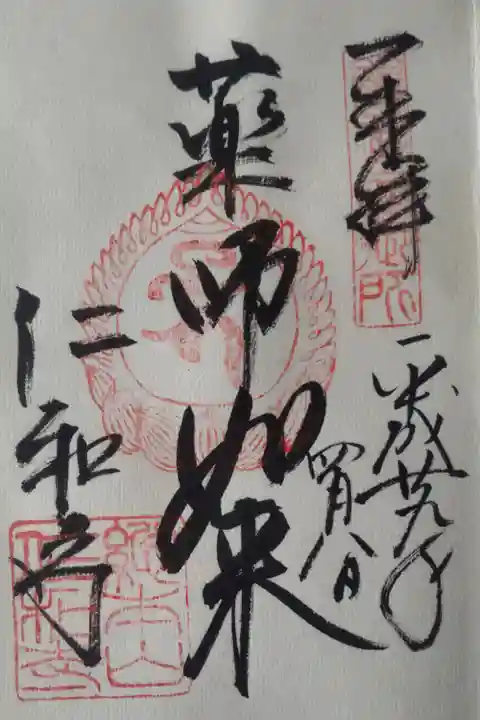 奉拝
平成廿九年
四月八日
薬師如来
仁和寺